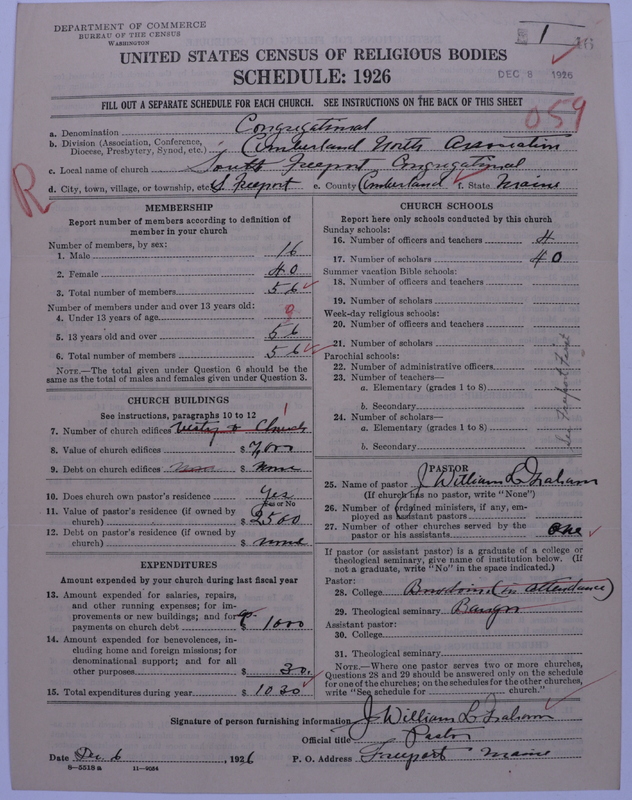 DEPARTMENT OF COMMERCE
BUREAU OF THE CENSUS
WASHINGTON
1
UNITED STATES CENSUS OF RELIGIOUS BODIES
SCHEDULE: 1926
DEC 8 1926
FILL OUT A SEPARATE SCHEDULE FOR EACH CHURCH. SEE INSTRUCTIONS ON THE BACK OF THIS SHEET
059
a. Denomination Congregational
b. Division (Association, Conference, Diocese, Presbytery, Synod, etc.) Cumberland North Association
c. Local name of church South Freeport Congregational
d. City, town, village, or township, etc. S. Freeport e. County Cumberland f. State Maine
R
MEMBERSHIP
Report number of members according to definition of
member in your church
Number of members, by sex:
1. Male 16
2. Female 40
3. Total number of members 56
Number of members under and over 13 years old:
4. Under 13 years of age
5. 13 years old and over 56
6. Total number of members 56
NOTE.—The total given under Question 6 should be the
same as the total of males and females given under Question 3.
CHURCH BUILDINGS
See instructions, paragraphs 10 to 12
7. Number of church edifices Vestry & Church 1
8. Value of church edifices $ 7,000
9. Debt on church edifices None $ None
10. Does church own pastor's residence Yes
Yes or No
11. Value of pastor's residence (if owned by
church) $ 2500
12. Debt on pastor's residence (if owned by
church) $ none
EXPENDITURES
Amount expended by your church during last fiscal year
13. Amount expended for salaries, repairs,
and other running expenses; for im-
provements or new buildings; and for
payments on church debt $ 1000
14. Amount expended for benevolences, in-
cluding home and foreign missions; for
denominational support; and for all
other purposes $ 30.
15. Total expenditures during year $ 1030
CHURCH SCHOOLS
Report here only schools conducted by this church
Sunday schools:
16. Number of officers and teachers 4
17. Number of scholars 40
Summer vacation Bible schools:
18. Number of officers and teachers
19. Number of scholars
Week-day religious schools:
20. Number of officers and teachers
21. Number of scholars
Parochial schools:
22. Number of administrative officers
23. Number of teachers—
a. Elementary (grades 1 to 8)
b. Secondary
24. Number of scholars—
a. Elementary (grades 1 to 8)
b. Secondary
See Freeport First
PASTOR
25. Name of pastor J William L Graham
(If church has no pastor, write "None")
26. Number of ordained ministers, if any, em-
ployed as assistant pastors
27. Number of other churches served by the
pastor or his assistants One
If pastor (or assistant pastor) is a graduate of a college or
theological seminary, give name of institution below. (If
not a graduate, write "No" in the space indicated.)
Pastor:
28. College Bowdoin (in attendance)
29. Theological seminary Bangor
Assistant pastor:
30. College
31. Theological seminary
NOTE.—Where one pastor serves two or more churches,
Questions 28 and 29 should be answered only on the schedule
for one of the churches; on the schedules for the other churches,
write "See schedule for church."
Signature of person furnishing information J William L Graham
Official title Pastor
Date Dec 6, 1926 P. O. Address Freeport Maine
8—5518 a 11—9034